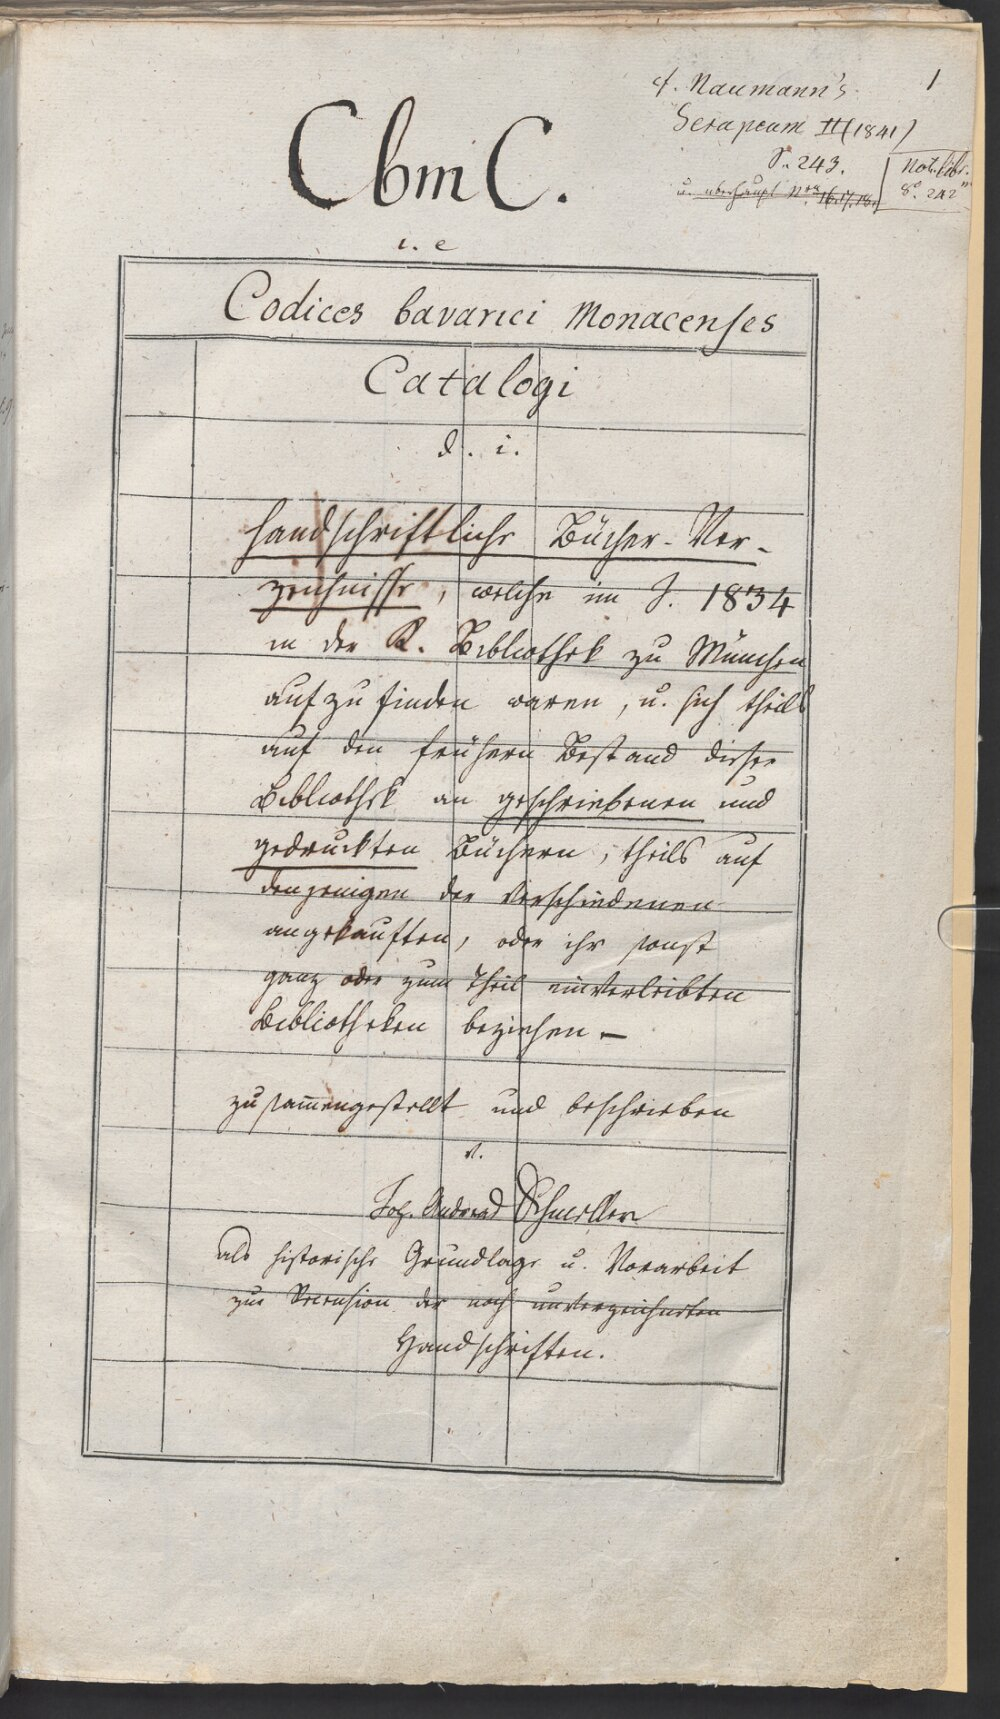 cf. Naumann's
Serapeum II (1841)
S. 243.
u. überhaupt Nro. 16. 17. 18.
1
Not. libr.
8° 242m
CbmC.
i. e
Codices bavarici Monacenses
Catalogi
d. i.
Handschriftliche Bücher-Ver-
zeichnisse, welche im J. 1834
in der K. Bibliothek zu München
aufzufinden waren, u. sich theils
auf den frühern Bestand dieser
Bibliothek an geschriebenen und
gedruckten Büchern, theils auf
denjenigen der verschiedenen
angekauften, oder ihr sonst
ganz oder zum Theil einverleibten
Bibliotheken beziehen –
zusam̄engestellt und beschrieben
v.
Joh. Andreas Schmeller
als historische Grundlage u. Vorarbeit
zur Recension der noch unverzeichneten
Handschriften.